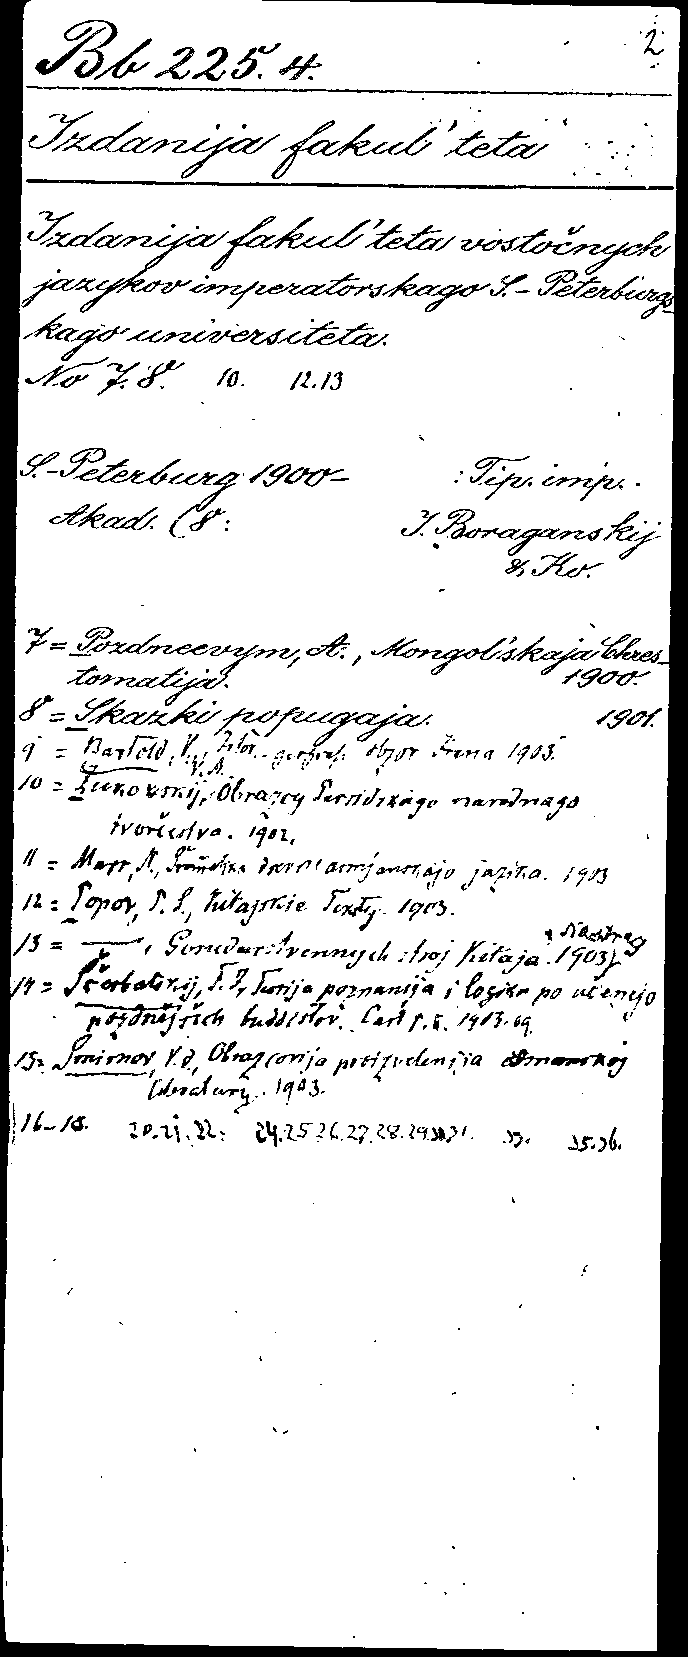 2
Bb 225.4.
Izdanija fakul'teta
Izdanija fakul'teta vostočnych
jazykov imperatorskago S.-Peterburgs-
kago universiteta.
No 7. 8. 10. 12.13
S.-Peterburg 1900- : Tip. imp.
Akad. (8: I. Boraganskij
& Ko.
7 = Pozdneevym, A., Mongol'skaja Chres-
tomatija. 1900.
8 = Skazki popugaja. 1901.
9 = Bartold, V., Istor. geograf. obzor Irana 1903.
10 = Žukovskij, V. A. Obrazcy Persidskago narodnago
tvorčestva. 1902.
11 = Marr, N., armjanskago jazika. 1903
12 = Popov, P. S., Kitajskie Teksty. 1903.
13 = —, Gosudarstvennych stroj Kitaja. 1903
14 = Ščerbatskij, F. I., Teorija poznanija i logika po učeniju
pozdnějšich buddistov. 1903.09
15 = Smirnov, V. D., Obrazcovija proizvedenija osmanskoj
literatury. 1903.
16-18. 20.21.22. 24.25.26.27.28.29.30.31. 33. 35.36.